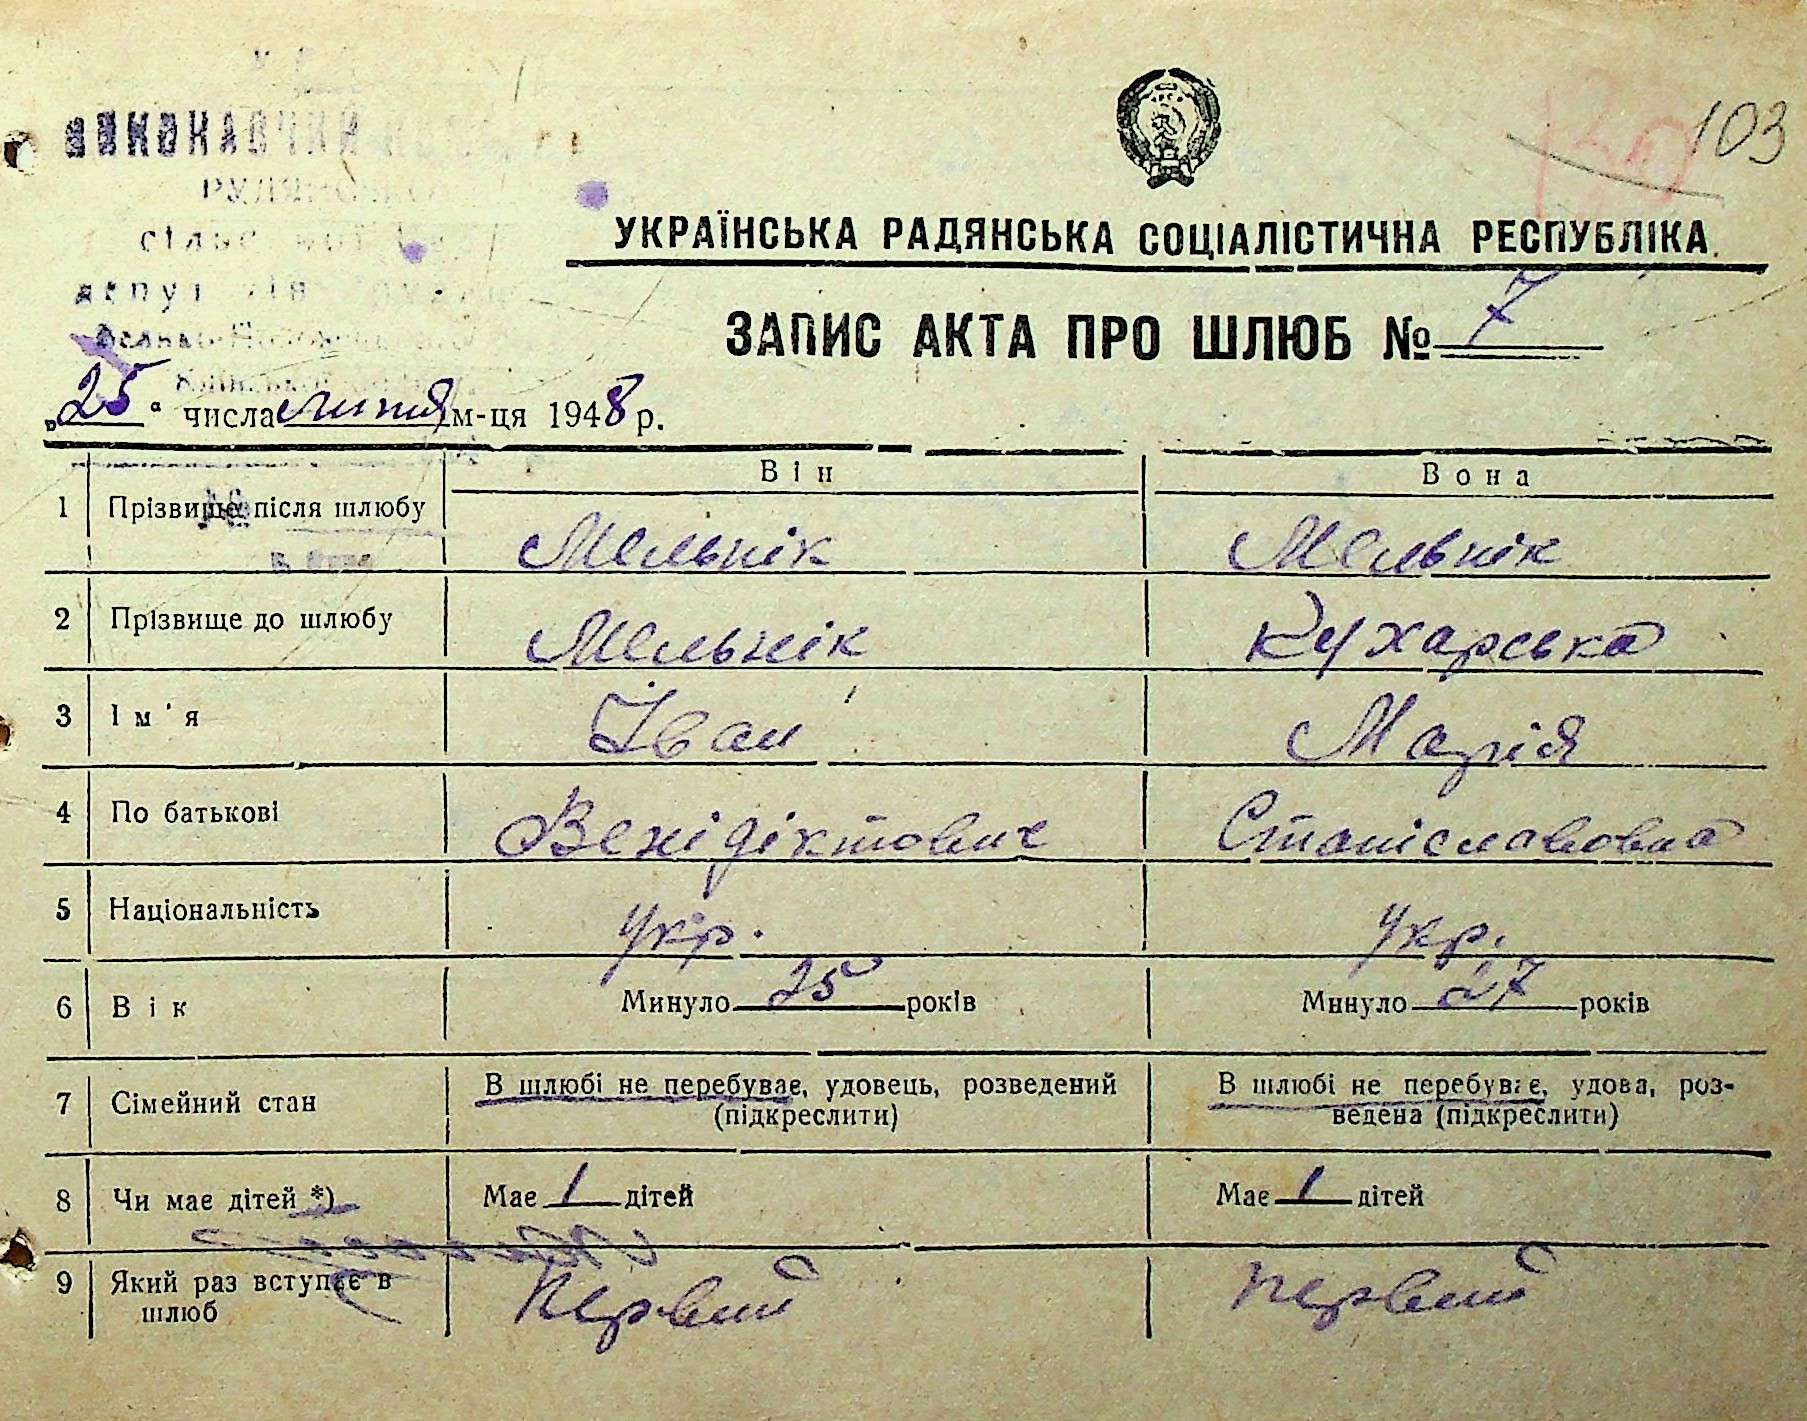 103
УКРАЇНСЬКА РАДЯНСЬКА СОЦІАЛІСТИЧНА РЕСПУБЛІКА
ЗАПИС АКТА ПРО ШЛЮБ № 7
„25“ числа липня м-ця 1948 р.
Він Вона
1 Прізвище після шлюбу Мельнік Мельнік
2 Прізвище до шлюбу Мельнік Кухарська
3 Ім'я Іван Марія
4 По батькові Венідіктович Станіславовна
5 Національність Укр. Укр.
6 Вік Минуло 25 років Минуло 27 років
7 Сімейний стан В шлюбі не перебуває, удовець, розведений В шлюбі не перебуває, удова, роз-
(підкреслити) ведена (підкреслити)
8 Чи має дітей *) Має 1 дітей Має 1 дітей
9 Який раз вступає в Первий Первий
шлюб